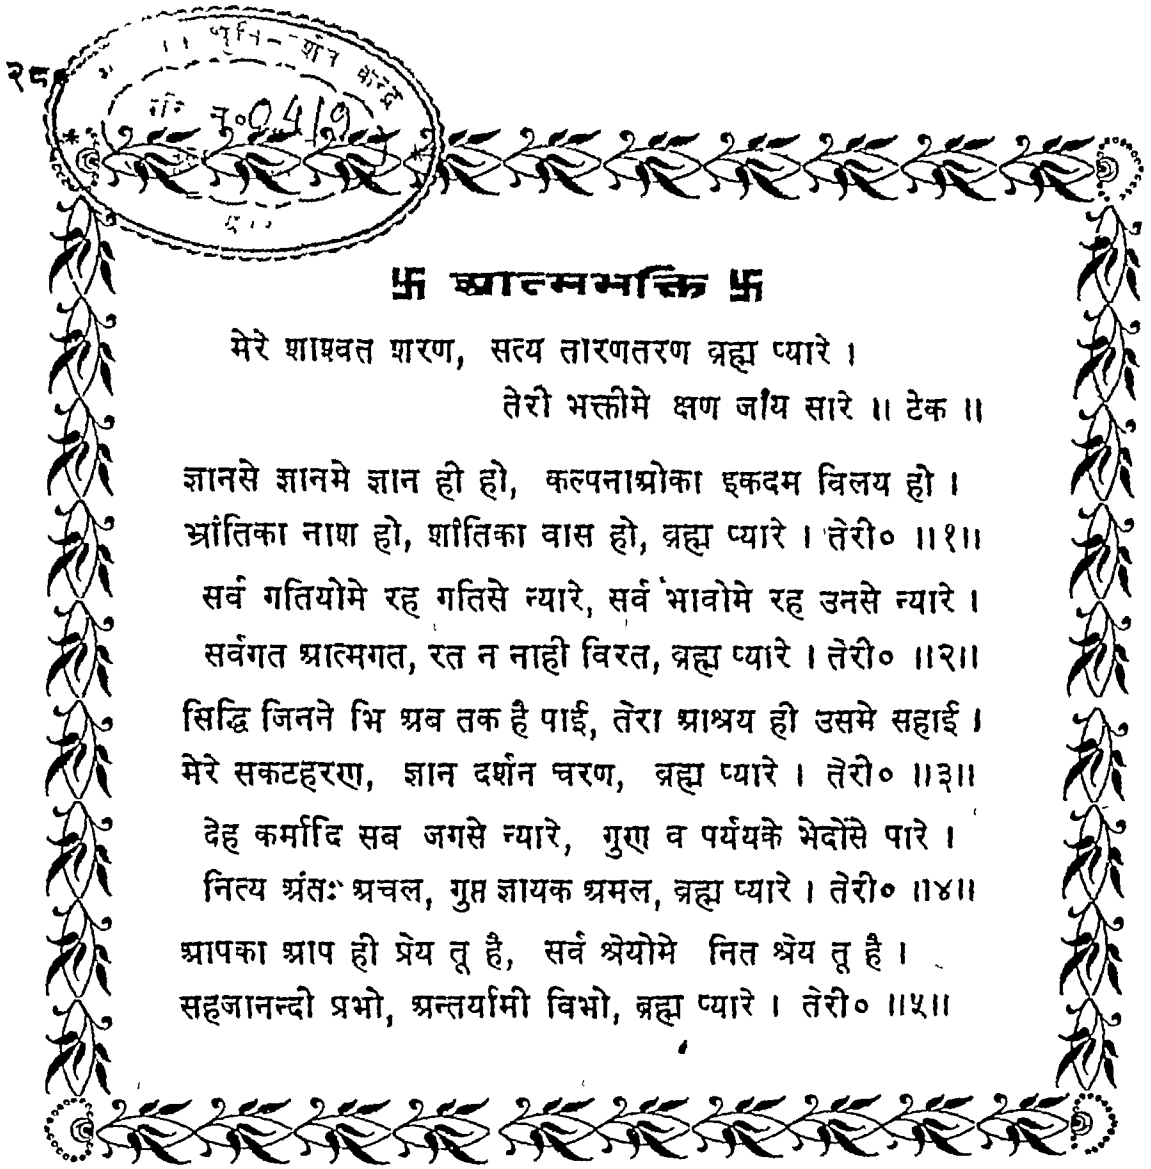 नं० 0419
卐 आत्मभक्ति 卐
मेरे शाश्वत शरण, सत्य तारणतरण ब्रह्म प्यारे ।
तेरी भक्तीमे क्षण जांय सारे ॥ टेक ॥
ज्ञानसे ज्ञानमे ज्ञान ही हो, कल्पनाओका इकदम विलय हो ।
भ्रांतिका नाश हो, शांतिका वास हो, ब्रह्म प्यारे । तेरी० ॥१॥
सर्व गतियोमे रह गतिसे न्यारे, सर्व भावोमे रह उनसे न्यारे ।
सर्वगत आत्मगत, रत न नाही विरत, ब्रह्म प्यारे । तेरी० ॥२॥
सिद्धि जिनने भि अब तक है पाई, तेरा आश्रय ही उसमे सहाई ।
मेरे सकटहरण, ज्ञान दर्शन चरण, ब्रह्म प्यारे । तेरी० ॥३॥
देह कर्मादि सब जगसे न्यारे, गुण व पर्ययके भेदोंसे पारे ।
नित्य अंतः अचल, गुप्त ज्ञायक अमल, ब्रह्म प्यारे । तेरी० ॥४॥
आपका आप ही प्रेय तू है, सर्व श्रेयोमे नित श्रेय तू है ।
सहजानन्दी प्रभो, अन्तर्यामी विभो, ब्रह्म प्यारे । तेरी० ॥५॥